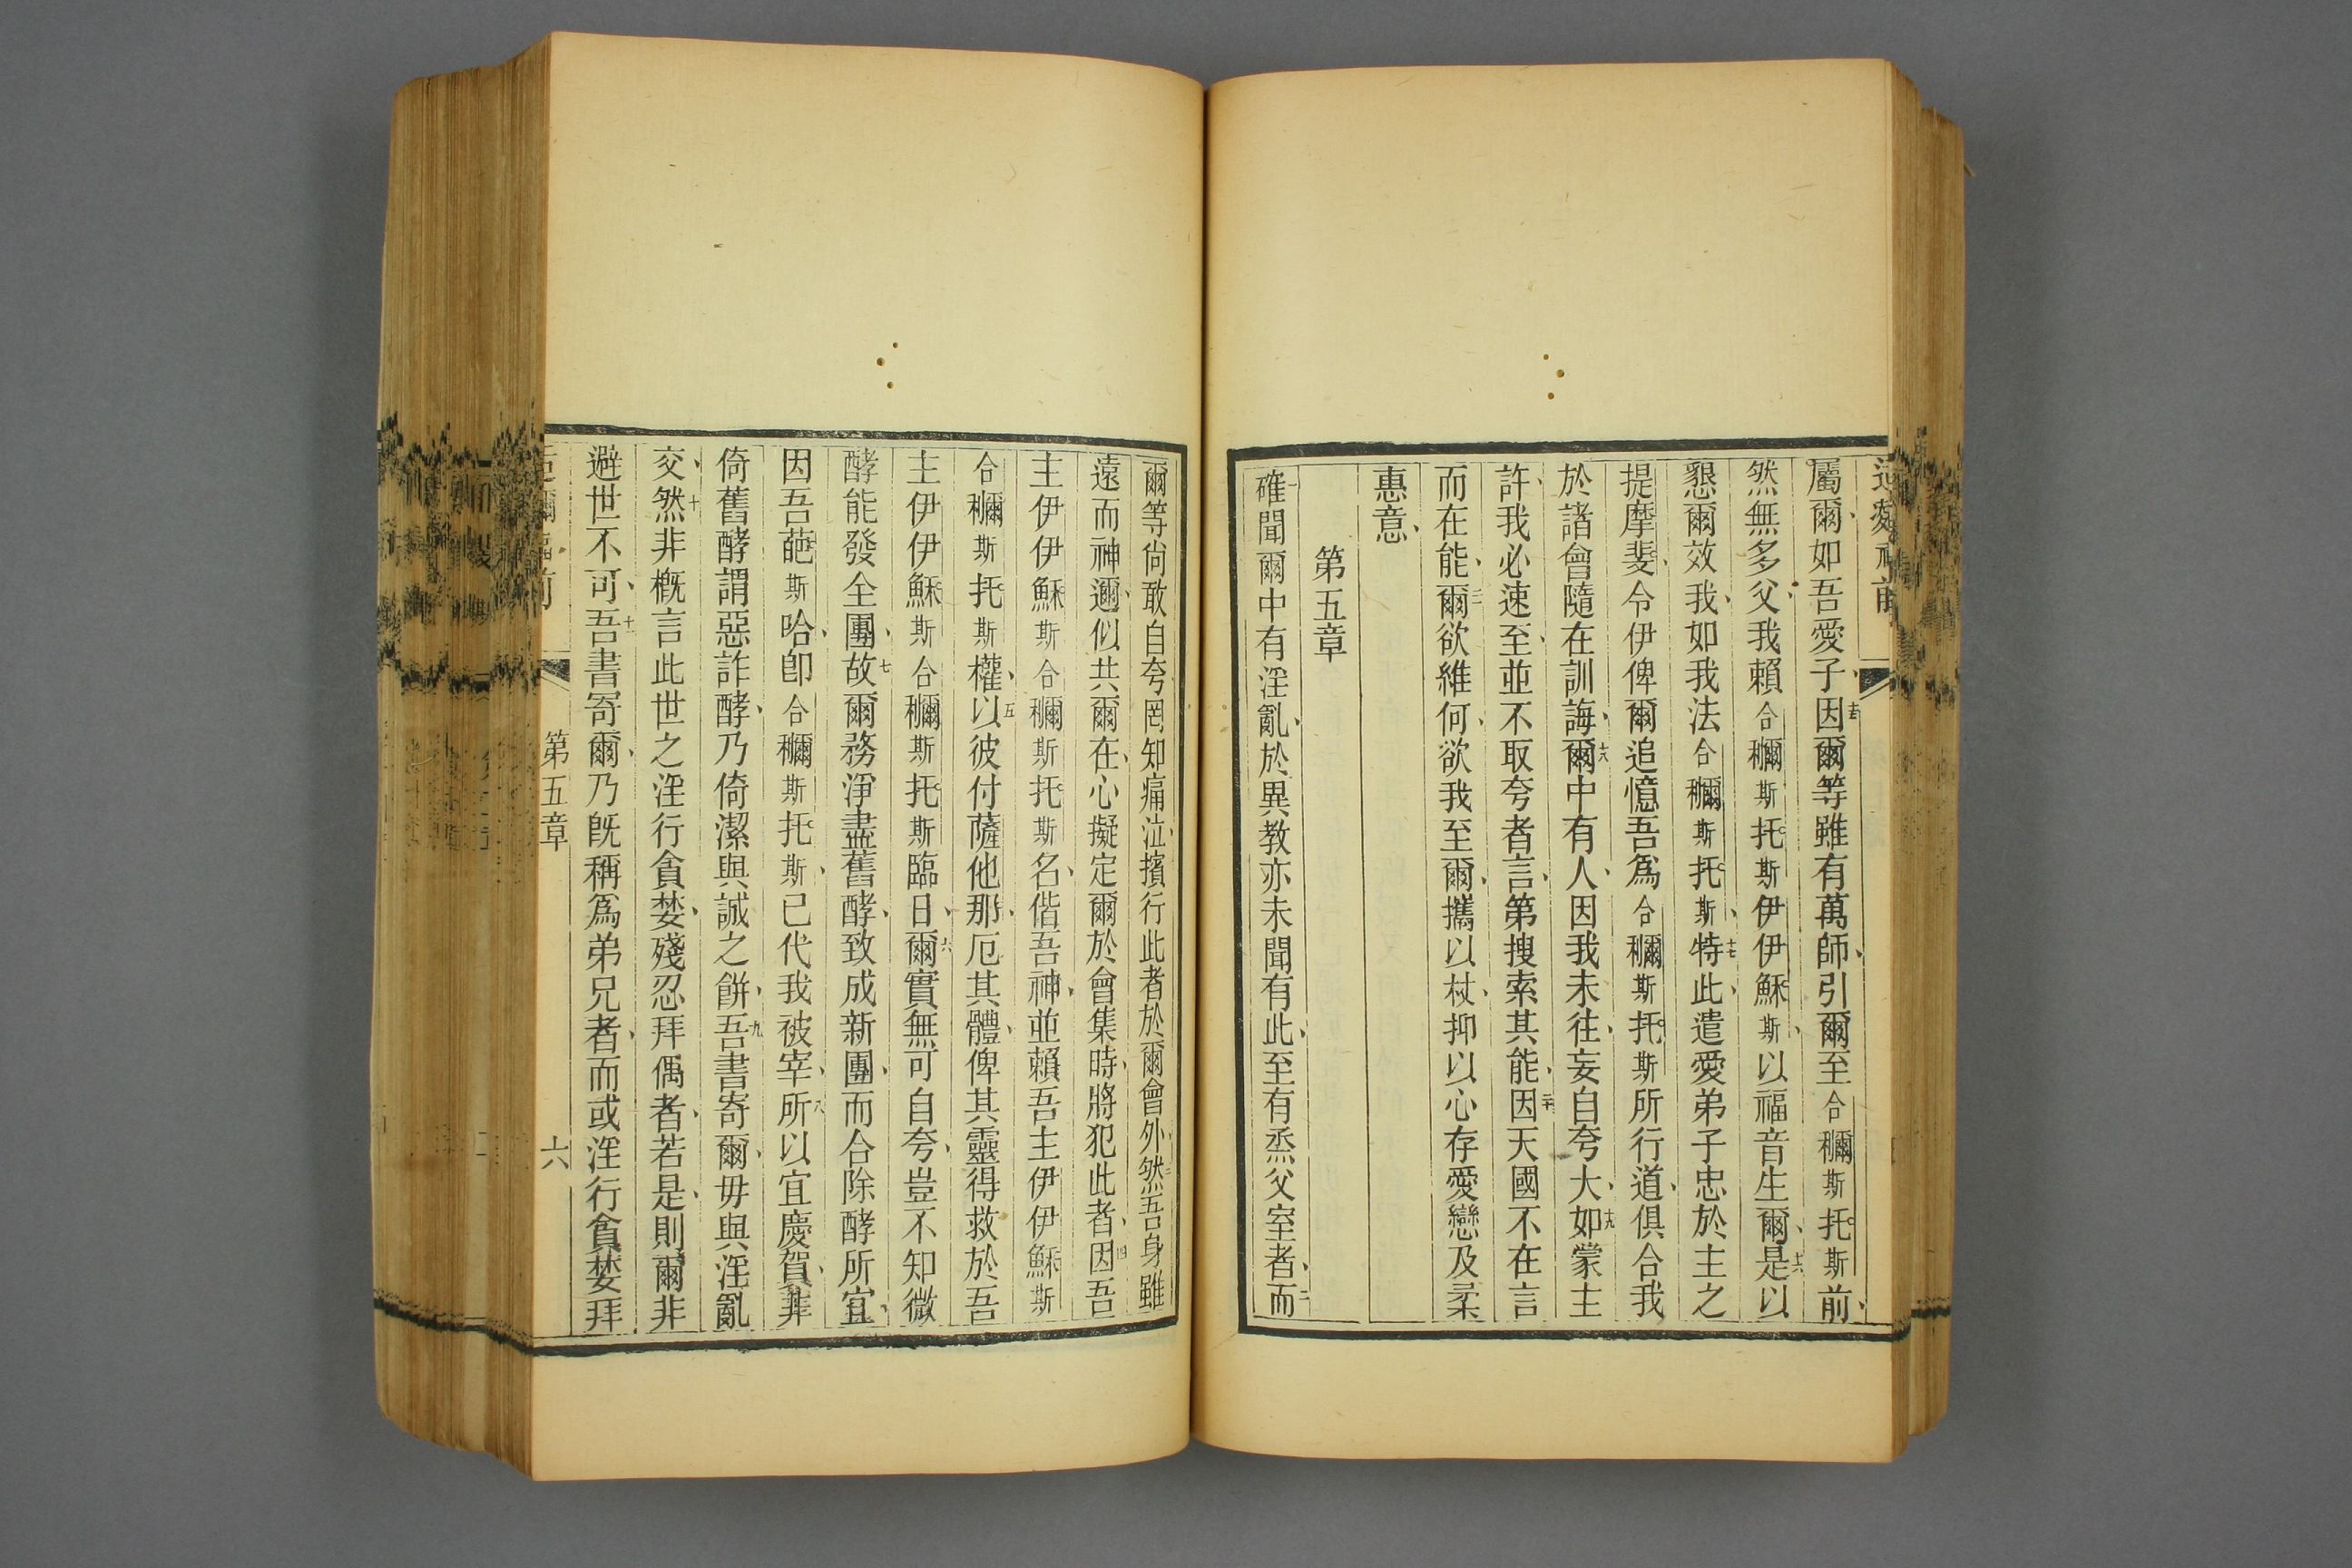 屬爾、如吾愛子、十五因爾等雖有萬師、引爾至合𥣡斯托斯前、
然無多父、我賴合𥣡斯托斯伊伊穌斯、以福音生爾、十六是以
懇爾效我、如我法合𥣡斯托斯、十七特此、遣愛弟子忠於主之
提摩斐、令伊俾爾追憶吾爲合𥣡斯托斯所行道、俱合我
於諸會隨在訓誨、十八爾中有人、因我未往、妄自夸大、十九如蒙主
許、我必速至、並不取夸者言、第搜索其能、二十因天國不在言
而在能、二一爾欲維何、欲我至爾、攜以杖、抑以心存愛戀及柔
惠意、
第五章
一確聞爾中有淫亂、於異教亦未聞有此、至有烝父室者、二而
爾等尙敢自夸、罔知痛泣、擯行此者於爾會外、三然吾身雖
遠而神邇、似共爾在、心擬定爾於會集時、將犯此者、四因吾
主伊伊穌斯合𥣡斯托斯名、偕吾神、並賴吾主伊伊穌斯
合𥣡斯托斯權、五以彼付薩他那、厄其體、俾其靈得救於吾
主伊伊穌斯合𥣡斯托斯臨日、六爾實無可自夸、豈不知微
酵能發全團、七故爾務淨盡舊酵、致成新團、而合除酵所宜、
因吾葩斯哈、卽合𥣡斯托斯、已代我被宰、八所以宜慶賀、非
倚舊酵、謂惡詐酵、乃倚潔與誠之餅、九吾書寄爾、毋與淫亂
交、十然非概言此世之淫行貪婪、殘忍拜偶者、若是、則爾非
避世不可、十一吾書寄爾、乃旣稱爲弟兄者、而或淫行貪婪拜
第五章
六